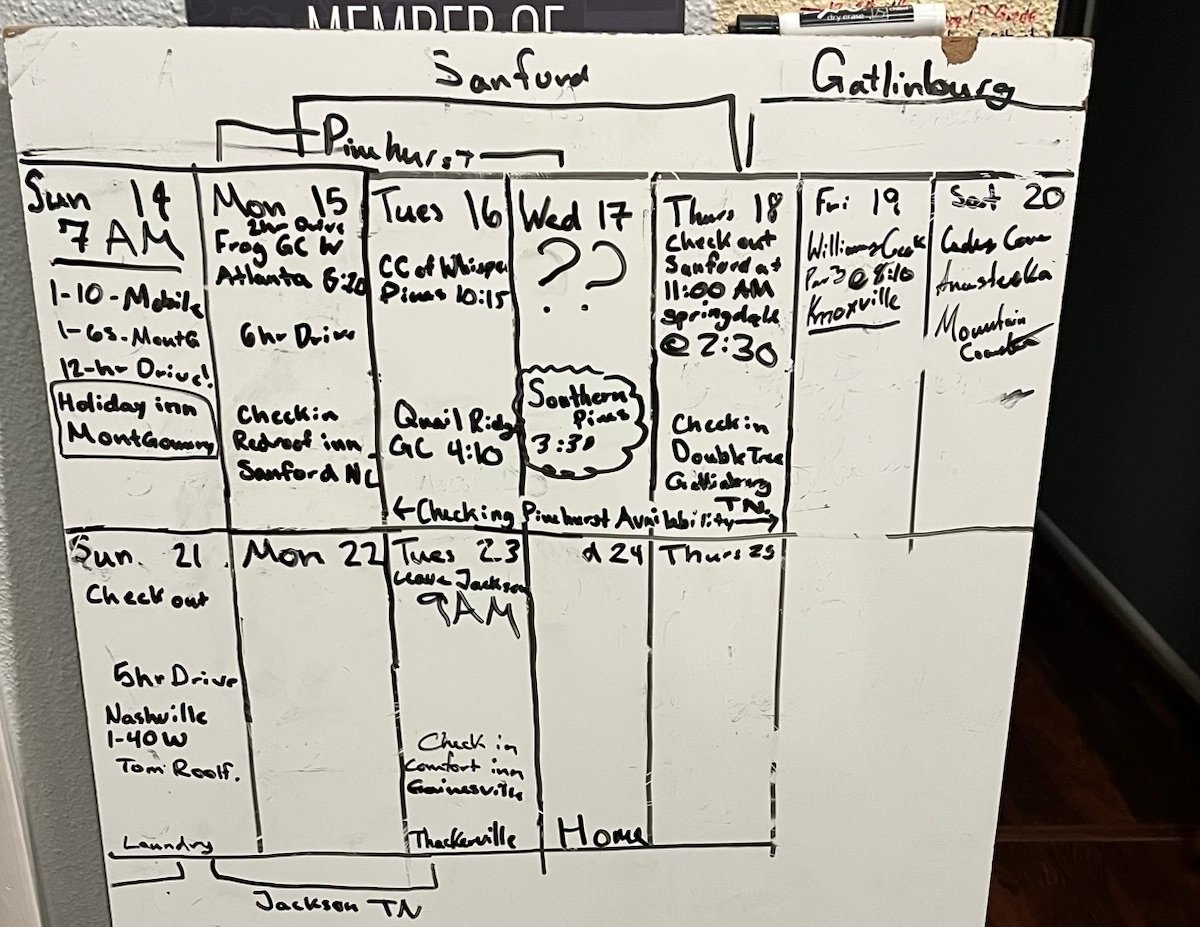 MEMBER OF
dry erase
Sanford
Gatlinburg
Pinehurst
Sun 14
7 AM
1-10-Mobile
1-65-MontG
12-hr Drive!
Holiday inn
Montgomery
Mon 15
2hr Drive
Frog GC W
Atlanta 8:20
6hr Drive
Checkin
Redroof inn
Sanford NC
Tues 16
CC of Whisper
Pines 10:15
Quail Ridge
GC 4:10
Wed 17
??
Southern
Pines
3:30
Thurs 18
Check out
Sanford at
11:00 AM
Springdale
@ 2:30
Check in
DoubleTree
Gatlinburg
TN.
Fri 19
Williams Creek
Par 3 @ 8:10
Knoxville
Sat 20
Cades Cove
Anasteeka
Mountain
Coaster
←Checking Pinehurst Availability→
Sun 21
Check out
5hr Drive
Nashville
1-40W
Tom Roolf.
Laundry
Mon 22
Tues 23
Leave Jackson
9AM
Check in
comfort inn
Gainesville
Thackerville
d 24
Home
Thurs 25
Jackson TN